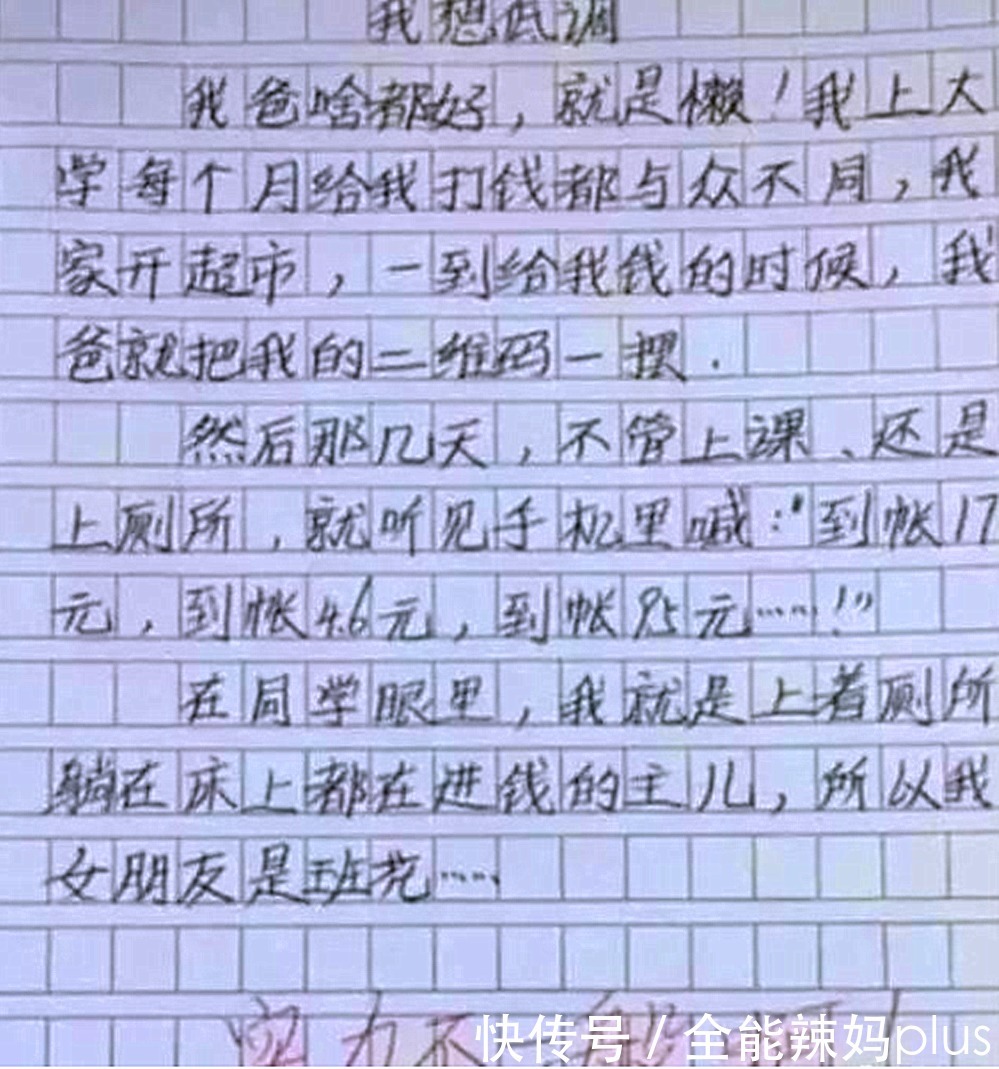 我想低调
我爸啥都好，就是懒！我上大
学每个月给我打钱都与众不同，我
家开超市，一到给我钱的时候，我
爸就把我的二维码一摆．
然后那几天，不管上课、还是
上厕所，就听见手机里喊："到帐17
元，到帐4.6元，到帐95元……！"
在同学眼里，我就是上着厕所
躺在床上都在进钱的主儿，所以我
女朋友是班花……
实力不
快传号／全能辣妈plus